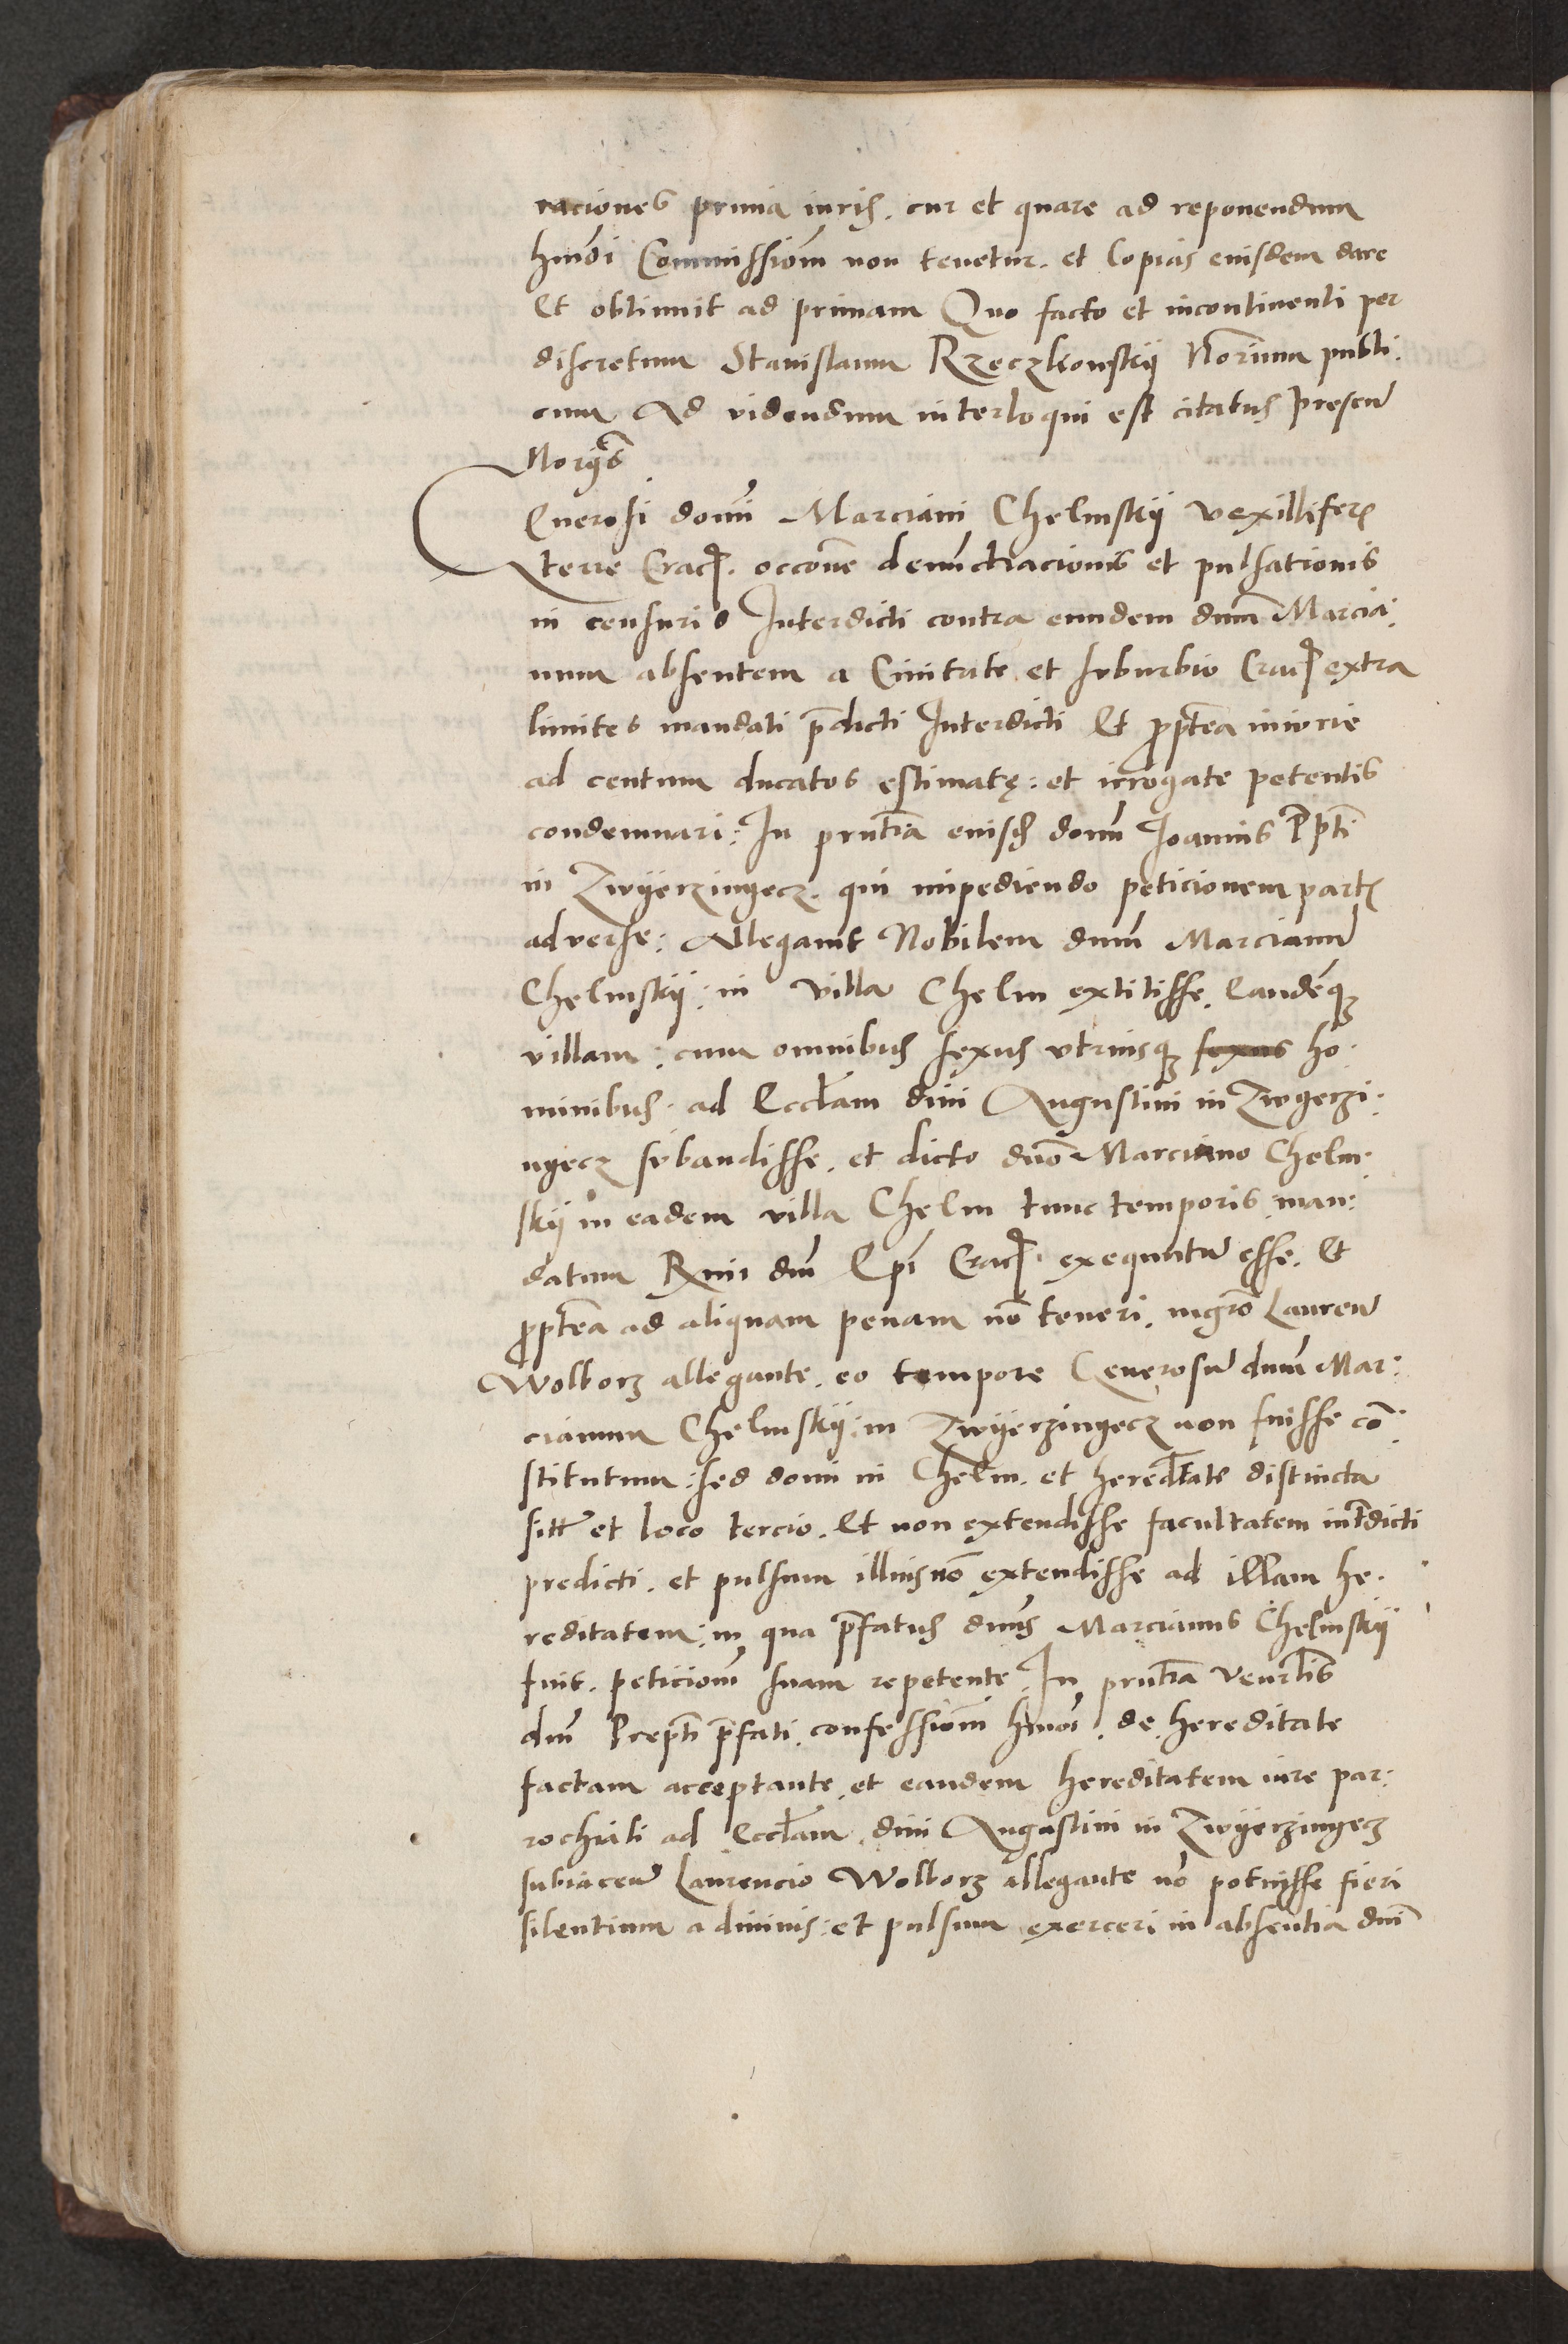 raciones primia iuris. cur et quare ad reponendum
hmoi Commissiom non tenetur. et Copias eiusdem dare
Et obtinuit ad primam Quo facto et incontinenti per
discretum Stanislaum Rzeczkowskij Norium publi:
cum Ad videndum interloqui est citatus presen
Norijs
Generosi domi Marciani Chelmskij vexilliferi
terre Crac. occone denunctiacionis et pulsationis
in censuris Interdicti contra eundem dnum Marcia:
num absentem a Ciuitate et suburbio Crac extra
limites mandati pdicti Interdicti Et proptea iniurie
ad centum ducatos estimatę: et irrogate petentis
condemnari: In pntia eiusd domi Joannis Ppti
in Zwijerzingecz. qui impediendo peticionem partis
aduerse: Allegauit Nobilem dnum Marcianu
Chelmskij: in villa Chelm extitisse. Eandemq
villam: cum omnibus sexus vtriusq sexus ho:
minibus. ad Eccliam diui Augustini in Zwgerzi:
ngecz subaudisse. et dicto dno Marciano Chelm:
skij in eadem villa Chelm tunc temporis man:
datum Rmi dni Epi Crac. exequutu esse. Et
proptea ad aliquam penam no teneri. mgro Lauren
Wolborz allegante. eo tempore Generosu dnum Mar:
cianum Chelmskij: in Zwijerzingecz non fuisse co:
stitutum: sed domi in Chelm. et hereditate distincta
sitr et loco tercio. Et non extendisse facultatem intdicti
predicti. et pulsum illius no extendisse ad illam he:
reditatem: in qua pfatus dnus Marcianus Chelmskij
fuit. peticiom suam repetente. In pntia venrlis
dni Prepti pfati. confessiom hmoi. de hereditate
factam acceptante. et eandem hereditatem iure par:
rochiali ad Eccliam diui Augustini in Zwijerzingecz
subiacen Laurencio Wolborz allegante no potuisse fieri
silentium a diuinis: et pulsum exerceri in absentia dni